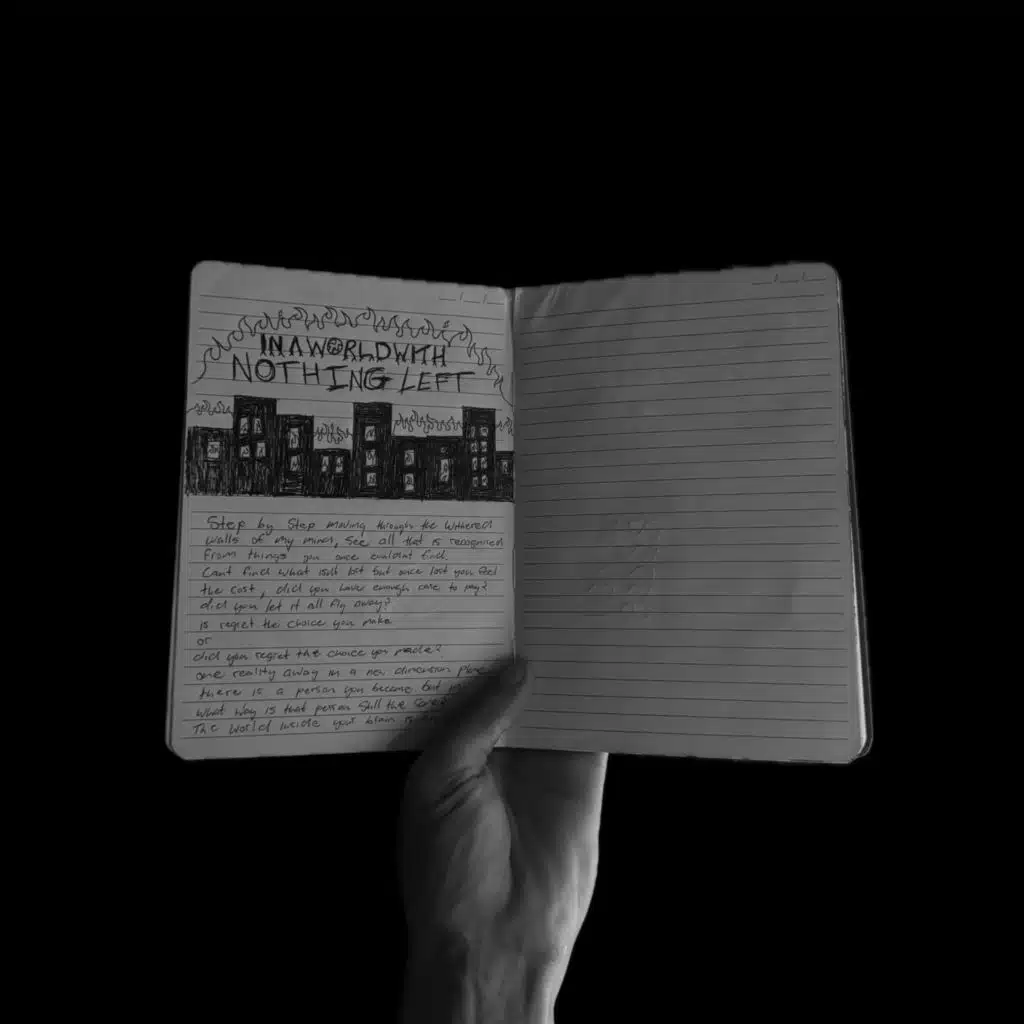 IN A WORLD WITH
NOTHING LEFT
Step by Step moving through the withered
walls of my mind, See all that is recognized
From things you once couldnt find.
Cant find what isnt lost but once lost you feel
the cost, did you have enough care to pay?
did you let it all fly away?
is regret the choice you make
or
did you regret the choice you made?
one reality away in a new dimension
there is a person you become but
what way is that person still the
The world inside your brain is